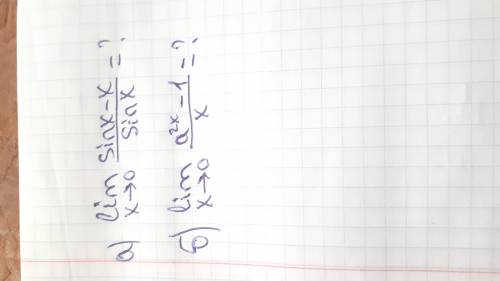 а) lim x→0 (sinx-x)/(sinx) = ?
б) lim x→0 (a^2x - 1)/x = ?